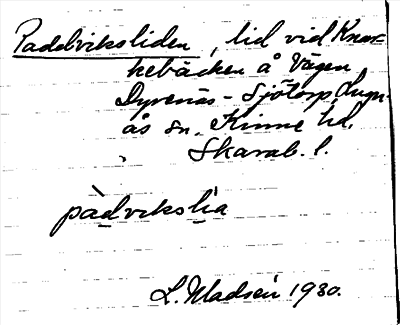 Paddviksliden, lid vid Knar-
kebäcken å Vägen
Dyrenäs - Sjötorp, Lugn-
ås sn. Kinne hd.
Skarab. l.
pàdvikslìa
L. Madsén 1930.